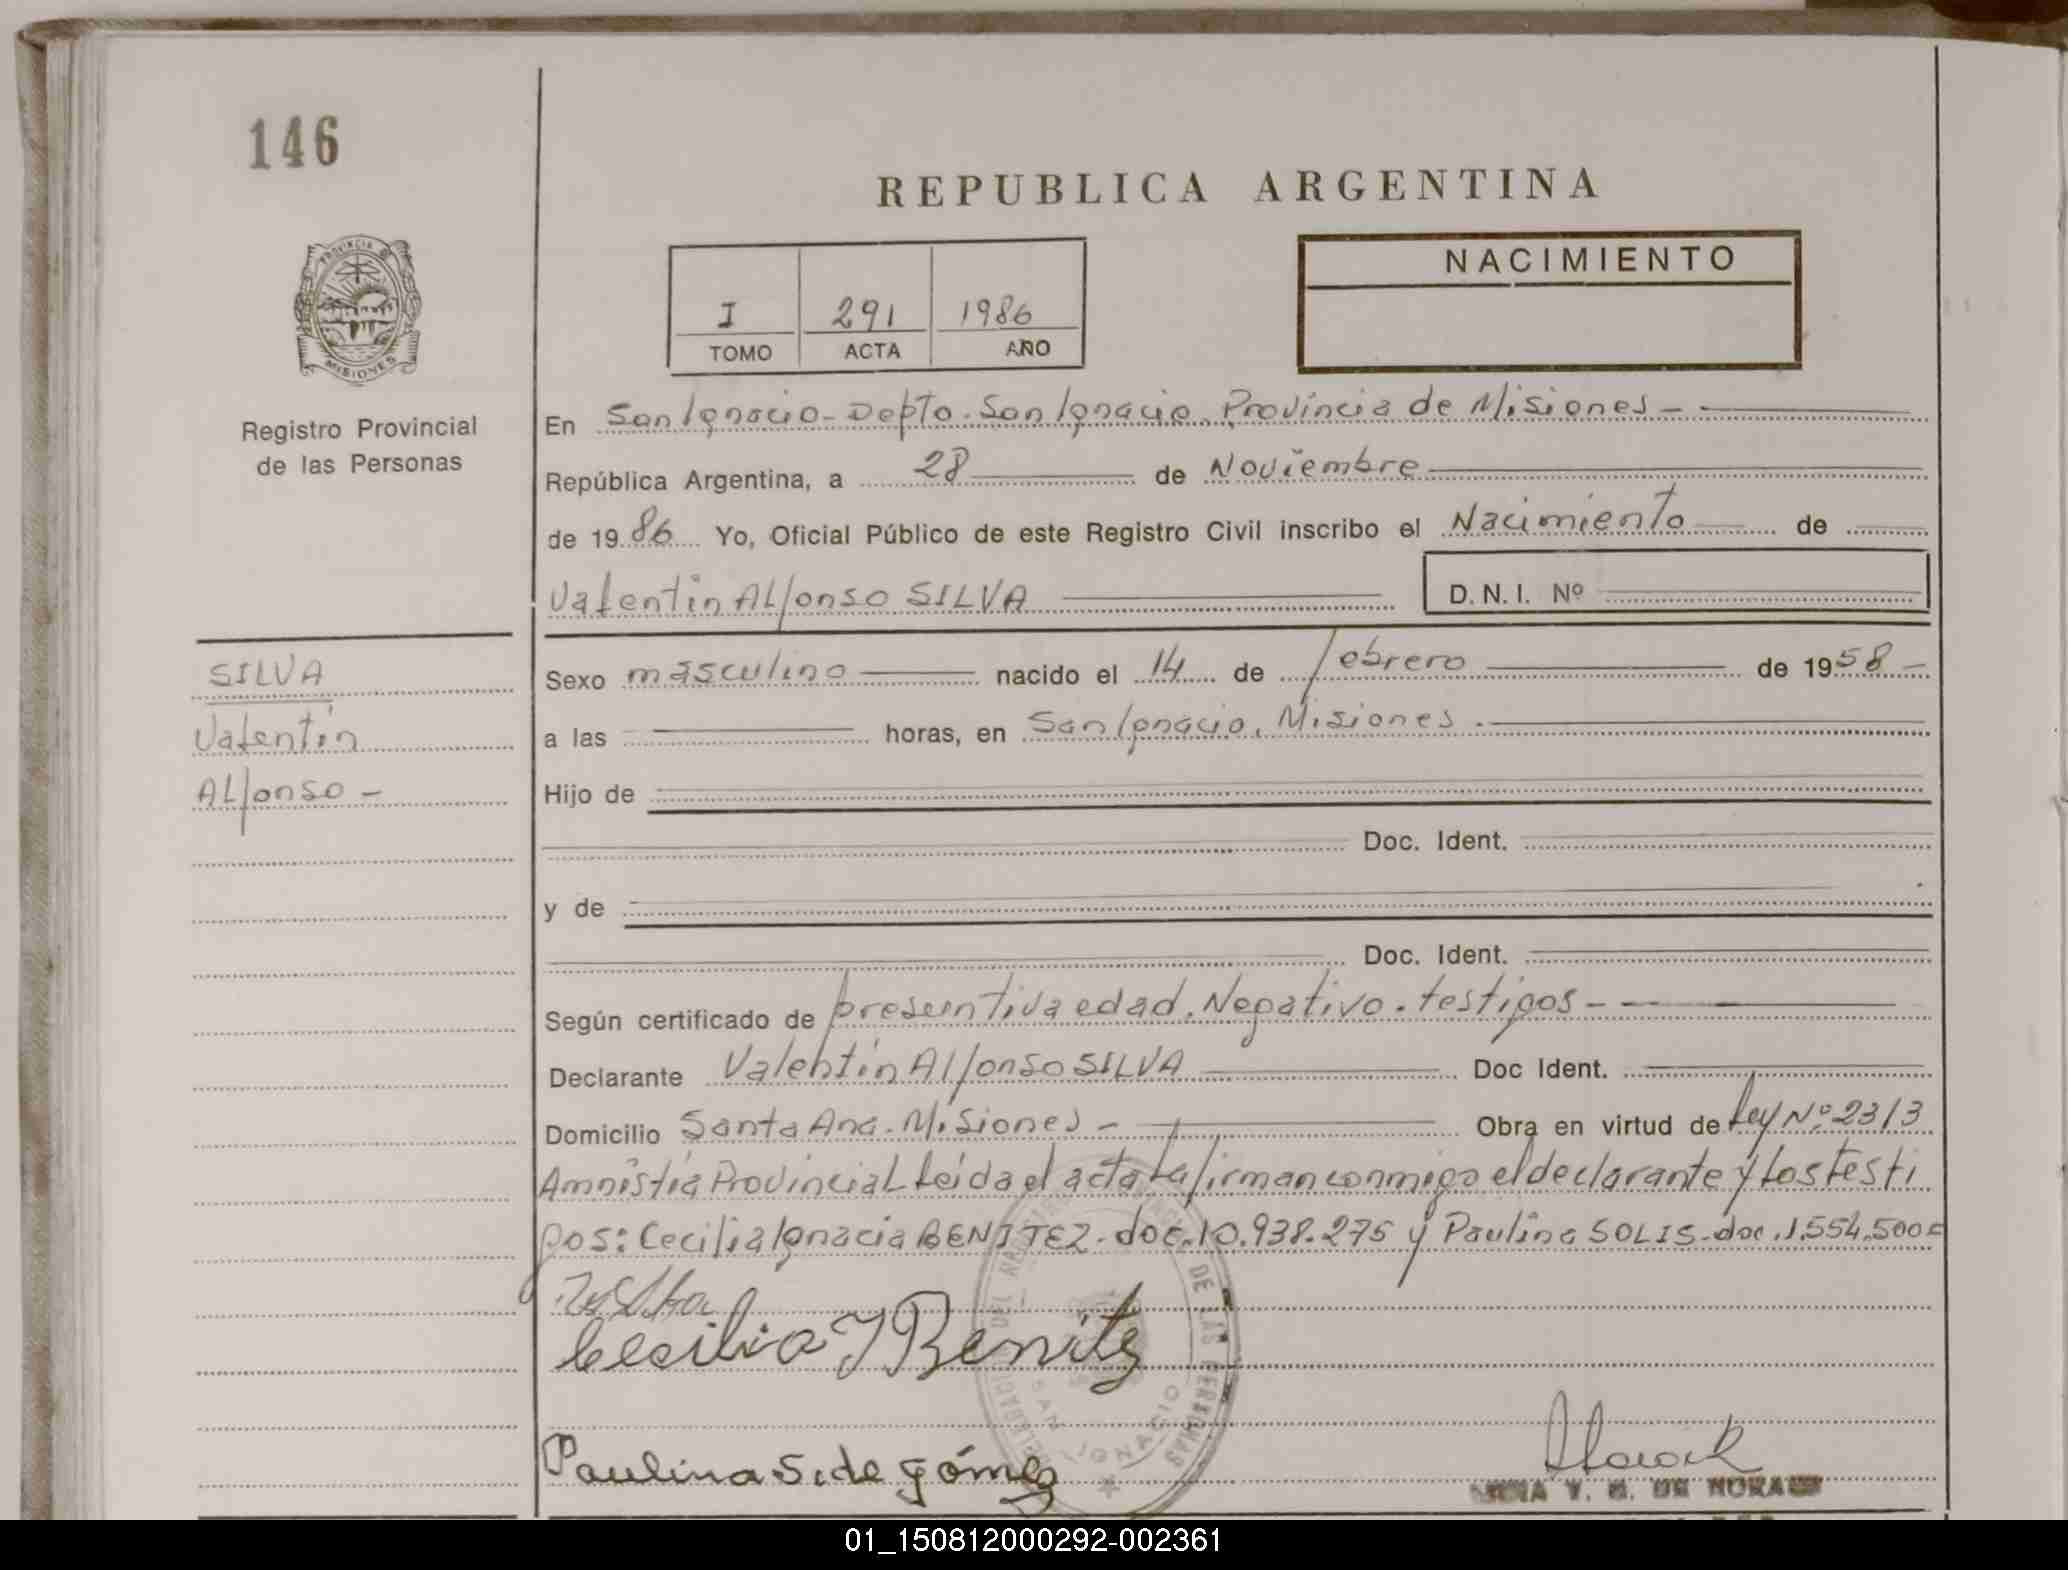 146
REPUBLICA ARGENTINA
PROVINCIA DE
MISIONES
Registro Provincial
de las Personas
NACIMIENTO
I 291 1986
TOMO ACTA AÑO
En San Ignacio - Depto. San Ignacio, Provincia de Misiones -
República Argentina, a 28 de Noviembre
de 1986 Yo, Oficial Público de este Registro Civil inscribo el Nacimiento de
Valentin Alfonso SILVA D.N.I. Nº
SILVA
Valentin
Alfonso -
Sexo masculino nacido el 14 de febrero de 1958 -
a las horas, en San Ignacio, Misiones.
Hijo de
Doc. Ident.
y de
Doc. Ident.
Según certificado de presuntiva edad. Negativo. testigos -
Declarante Valentin Alfonso SILVA Doc Ident.
Domicilio Santa Ana. Misiones - Obra en virtud de Ley Nº 2313
Amnistia Provincial Leida el acta La firman conmigo el declarante y Los testi
gos: Cecilia Ignacia BENITEZ - doc. 10.938.275 y Paulina SOLIS - doc. 1.554.500
Cecilia Y Benitez
DE LAS PERSONAS
SAN IGNACIO
Paulina S. de gómez
Y. DE
01_150812000292-002361